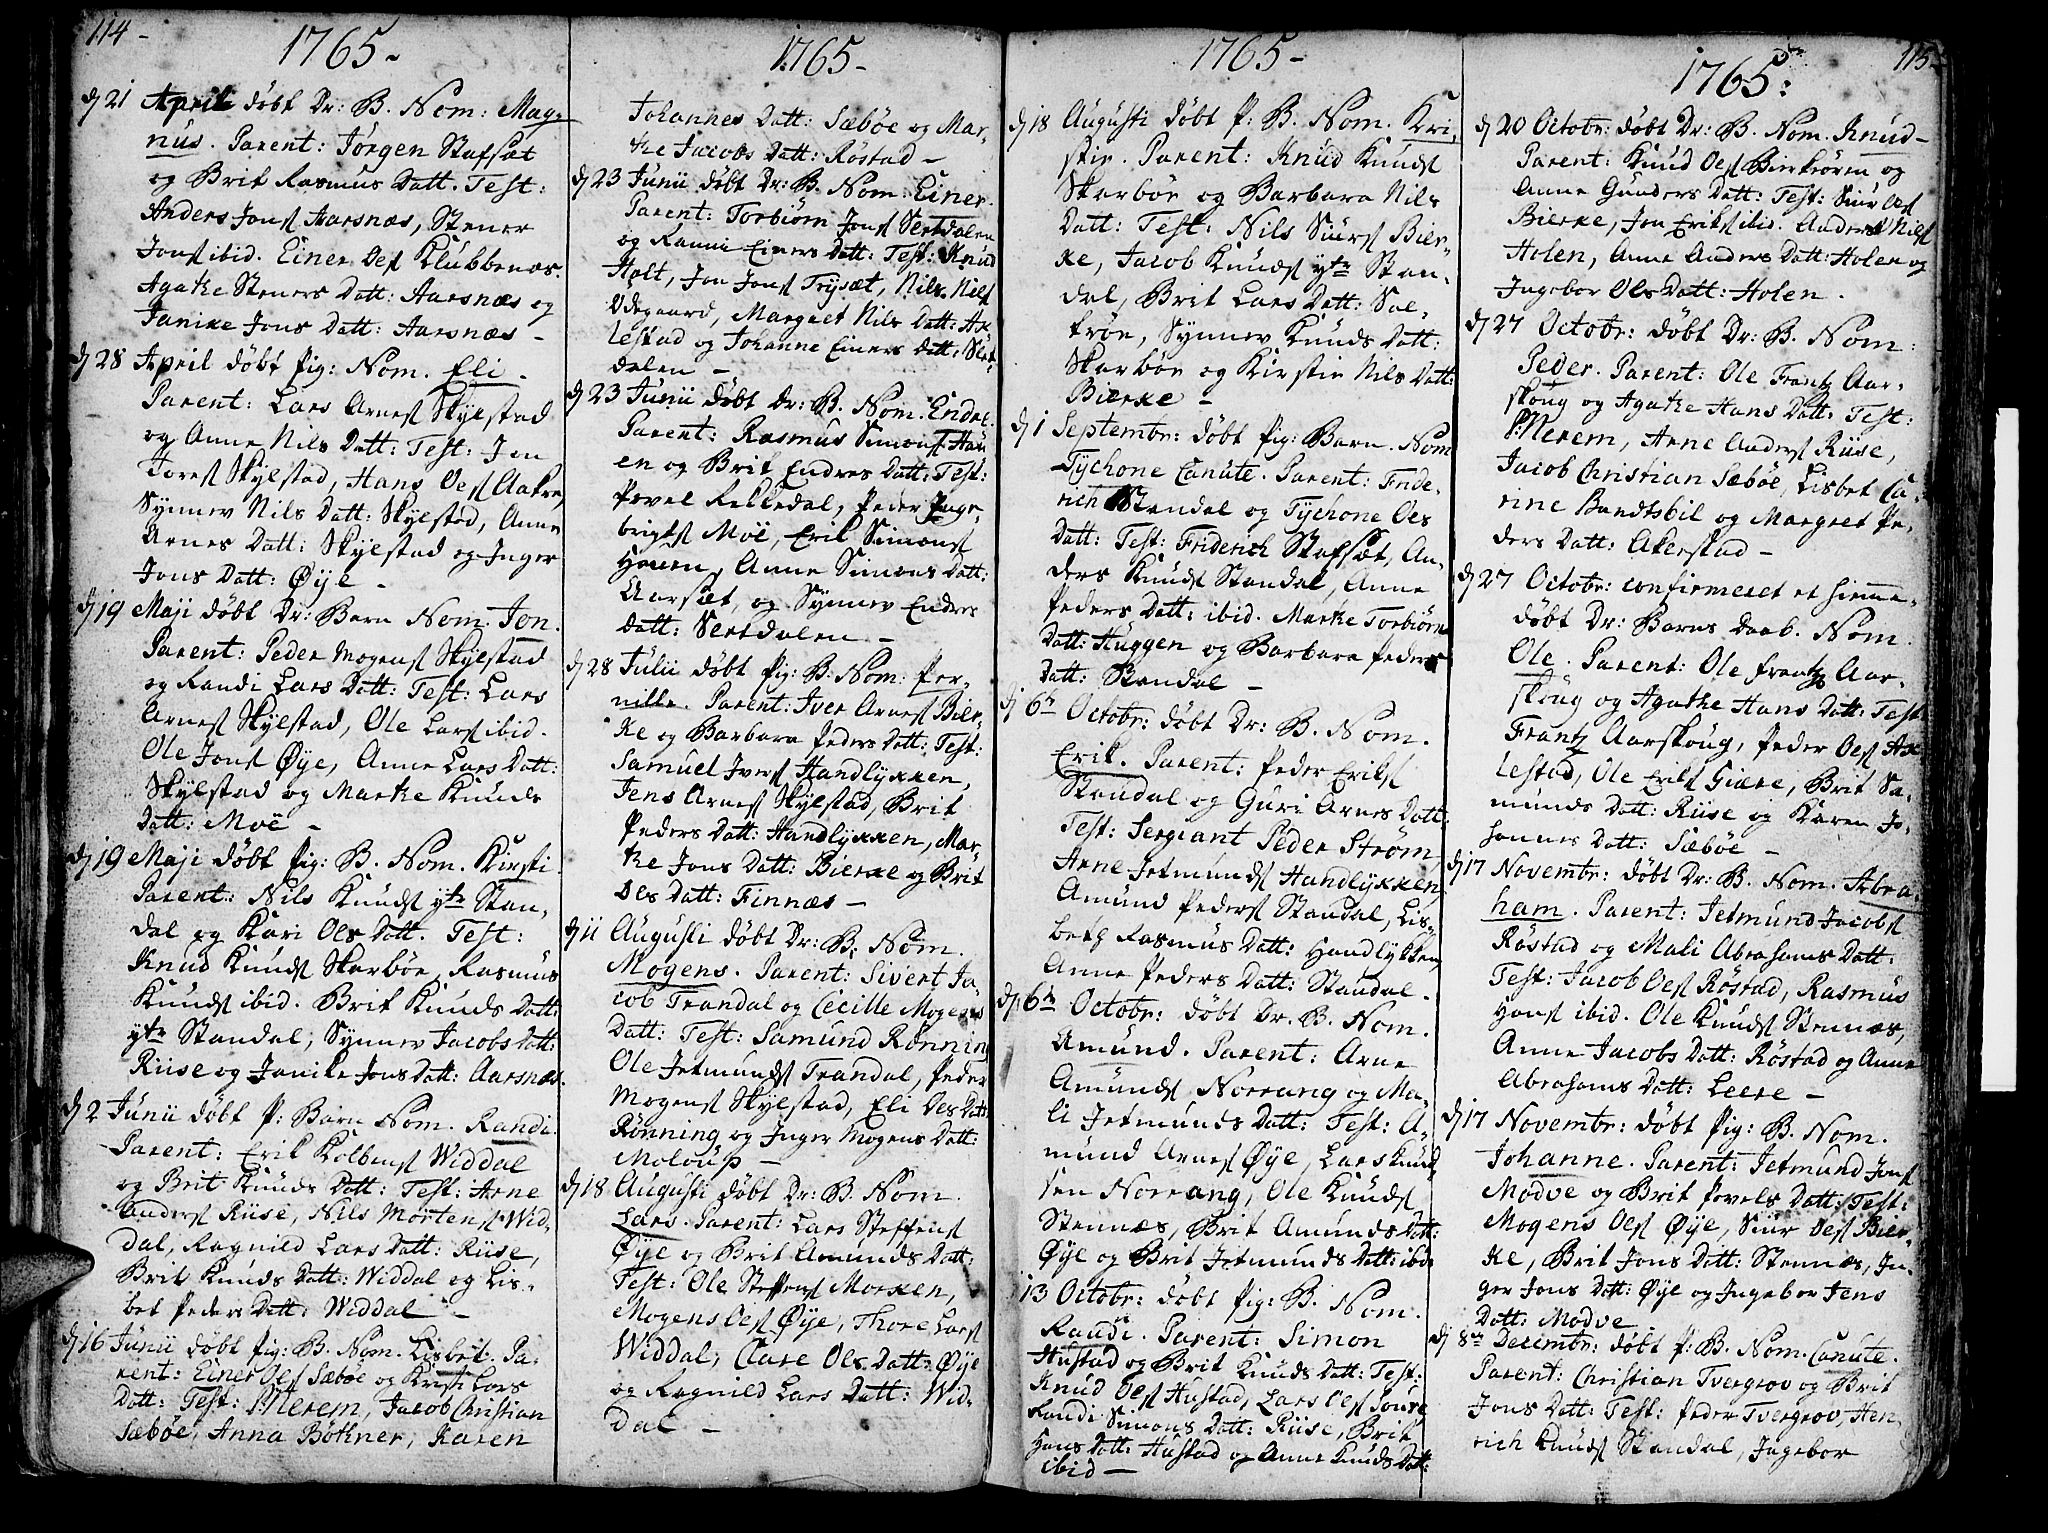 114 -
1765 -
dj 21 April döbt Dr: B. Nom: Mag-
nus. Parent: Jörgen Stafsæt
og Brit Rasmus Datt. Test:
Anders Jons Aarsnæs, Stener
Jons ibid. Einer Oes Klubbenæs.
Agathe Steners Datt: Aarsnæs og
Janike Jons Datt: Aarsnæs -
dj 28 April döbt Pig: Nom. Eli -
Parent: Lars Arnes Skylstad
og Anne Nils Datt: Test: Jon
Tores Skylstad, Hans Oes Aakre,
Synnev Nils Datt: Skylstad, Anne
Arnes Datt: Skylstad og Inger
Jons Datt: Øye -
dj 19 Maji döbt Dr: Barn Nom. Jon.
Parent: Peder Mogens Skylstad
og Randi Lars Datt: Test: Lars
Arnes Skylstad, Ole Lars ibid.
Ole Jons Øye, Anne Lars Datt:
Skylstad og Marthe Knuds
Datt: Moe -
dj 19 Maji döbt Pig: B. Nom. Kirsti.
Parent: Nils Knuds ytr Stan-
dal og Kari Ols Datt. Test:
Knud Knuds Skarböe, Rasmus
Knuds ibid. Brit Knuds Datt:
ytr Standal, Synnev Jacobs Datt:
Riise og Janike Jons Datt: Aarsnæs.
dj 2 Junii döbt P: Barn Nom. Randi.
Parent: Erik Kolbens Widdal
og Brit Knuds Datt: Test: Arne
Anders Riise, Nils Mortens Wid-
dal, Ragnild Lars Datt: Riise,
Brit Knuds Datt: Widdal og Lis-
bet Peders Datt: Widdal -
dj 16 Junii döbt Pig: B. Nom. Lisbet. Pa-
rent: Einer Oes Sæböe og Kristi Lars
Datt: Test: Merem, Jacob Christian
Sæböe, Anna Bötkner, Karen
1765 -
Johannes Datt: Sæböe og Mar-
the Jacobs Datt: Röstad -
dj 23 Junii döbt Dr: B. Nom: Einer.
Parent: Torbiörn Jons Sertdalen
og Ranni Einers Datt: Test: Knud
Holt, Jon Jons Trysæt, Nils Nils
Udegaard, Margret Nils Datt: Ak-
lestad og Johanne Einers Datt: Sert-
dalen -
dj 23 Junii döbt Dr: B. Nom. Endre.
Parent: Rasmus Simons Hau-
en og Brit Endres Datt: Test:
Povel Rekkedal, Peder Inge-
brigts Moe, Erik Simons
Hauen, Anne Simons Datt:
Aarsæt, og Synnev Enders
Datt: Sertdalen -
dj 28 Julii döbt Pig: B: Nom: Per-
nille. Parent: Iver Arnes Bier-
ke og Barbara Peders Datt: Test:
Samuel Ivers Handlykken,
Jens Arnes Skylstad, Brit
Peders Datt: Handlykken, Mar-
the Jons Datt: Bierke og Brit
Oes Datt: Finnæs -
dj 11 Augusti döbt Dr: B: Nom.
Mogens. Parent: Sivert Ja-
cob Trandal og Cecille Mogens
Datt: Test: Samund Rønning
Ole Jetmunds Trandal, Peder
Mogens Skylstad, Eli Oes Datt:
Rønning og Inger Mogens Datt:
Moloup -
dj 18 Augusti döbt Dr: B. Nom.
Lars. Parent: Lars Steffens
Øye og Brit Amunds Datt:
Test: Ole Steffens Morken,
Mogens Oes Øye, Thore Lars
Widdal, Clare Ols Datt: Øye
og Ragnild Lars Datt: Wid-
dal -
1765 -
dj 18 Augusti döbt P: B. Nom. Kri-
stin. Parent: Knud Knuds
Skarböe og Barbara Nils
Datt: Test: Nils Siurs Bier-
ke, Jacob Knuds ytr Stan-
dal, Brit Lars Datt: Sæ-
tröe, Synnev Knuds Datt:
Skarböe og Kirstin Nils Datt:
Bierke -
dj 1 Septembr: döbt Pig: Barn. Nom
Tychone Canute. Parent: Fride-
rich Standal og Tychone Oes
Datt: Test: Friderich Stafsæt, An-
ders Knuds Standal, Anne
Peders Datt: ibid. Marthe Torbiörn
Datt: Huggen og Barbara Peders
Datt: Standal -
dj 6te Octobr: döbt Dr: B. Nom.
Erik. Parent: Peder Eriks
Standal og Guri Arnes Datt:
Test: Sergiant Peder Ström,
Arne Jetmunds Handlykken,
Amund Peders Standal, Lis-
beth Rasmus Datt: Handlykken,
Anne Peders Datt: Standal.
dj 6te Octobr: döbt Dr. B. Nom.
Amund. Parent: Arne
Amunds Norrang og Ma-
li Jetmunds Datt: Test: A-
mund Arnes Øye, Lars Knud-
sen Norrang, Ole Knuds
Stennæs, Brit Amunds Datt:
Øye og Brit Jetmunds Datt: ibid.
13 Octobr: döbt Pig: B. Nom.
Randi. Parent: Simon
Hustad og Brit Knuds Datt: Test:
Knud Oes Hustad, Lars Oes
Randi Simons Datt: Riise, Brit
Hans Datt: Hustad og Anne Knuds Datt:
ibid -
115
1765:
dj 20 Octobr: döbt Dr: B. Nom. Knud -
Parent: Knud Oes Bierkören og
Anne Gunders Datt: Test: Siur Oes
Bierke, Jon Eriks ibid. Anders Nils
Holen, Anne Anders Datt: Holen og
Ingebor Ols Datt: Holen.
dj 27 Octobr: döbt Dr: B. Nom:
Peder. Parent: Ole Frantz Aar-
skoug og Agathe Hans Datt: Test:
Merem, Arne Anders Riise,
Jacob Christian Sæböe, Lisbet Ca-
rine Bandtsbil og Margret Pe-
ders Datt: Akerstad -
dj 27 Octobr: confirmeret et hiemme-
döbt Dr: Barns Daab. Nom.
Ole. Parent: Ole Frantz Aar-
skoug og Agathe Hans Datt: Test
Frantz Aarskoug, Peder Oes Ak-
lestad, Ole Eriks Giære, Brit Sa-
munds Datt: Riise og Karen Jo-
hannes Datt: Sæböe -
dj 17 Novembr: döbt Dr: B. Nom. Abra-
ham. Parent: Jetmund Jacobs
Röstad og Mali Abrahams Datt:
Test: Jacob Oes Røstad, Rasmus
Hans ibid. Ole Knuds Stennæs,
Anne Jacobs Datt: Røstad og Anne
Abrahams Datt: Leere -
dj 17 Novembr: döbt Pig: B. Nom.
Johanne. Parent: Jetmund Jons
Modve og Brit Povels Datt: Test:
Mogens Oes Øye, Siur Oes Bier-
ke, Brit Jons Datt: Stennæs, In-
ger Jons Datt: Øye og Ingebor Jens
Datt: Modve
dj 8de Decembr: döbt P: B. Nom. Canute.
Parent: Christian Tvergrov og Brit
Jons Datt: Test: Peder Tvergrov, Hen-
rich Knuds Standal, Ingebor